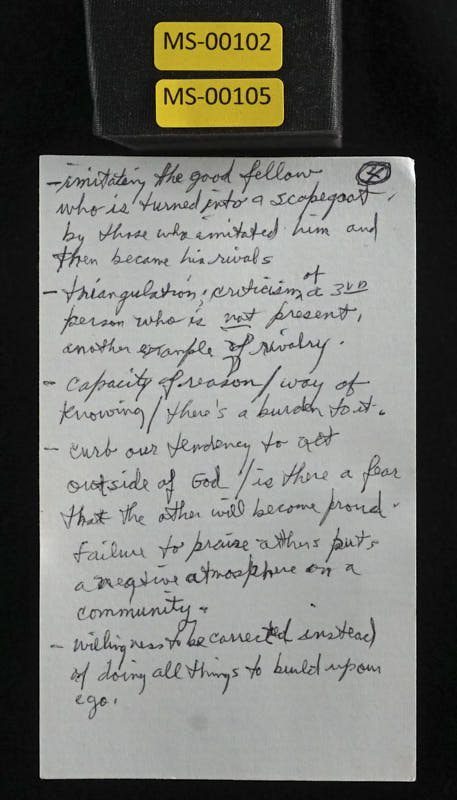 MS-00102
MS-00105
4
- imitating the good fellow
who is turned into a scapegoat
by those who imitated him and
then became his rivals
- triangulation; criticism of a 3RD
person who is not present,
another example of rivalry.
- capacity of reason / way of
knowing / there's a burden to it.
- curb our tendency to act
outside of God / is there a fear
that the other will become proud.
Failure to praise others puts
a negtive atmosphere on a
community.
- willingness to be corrected instead
of doing all things to build up our
ego.